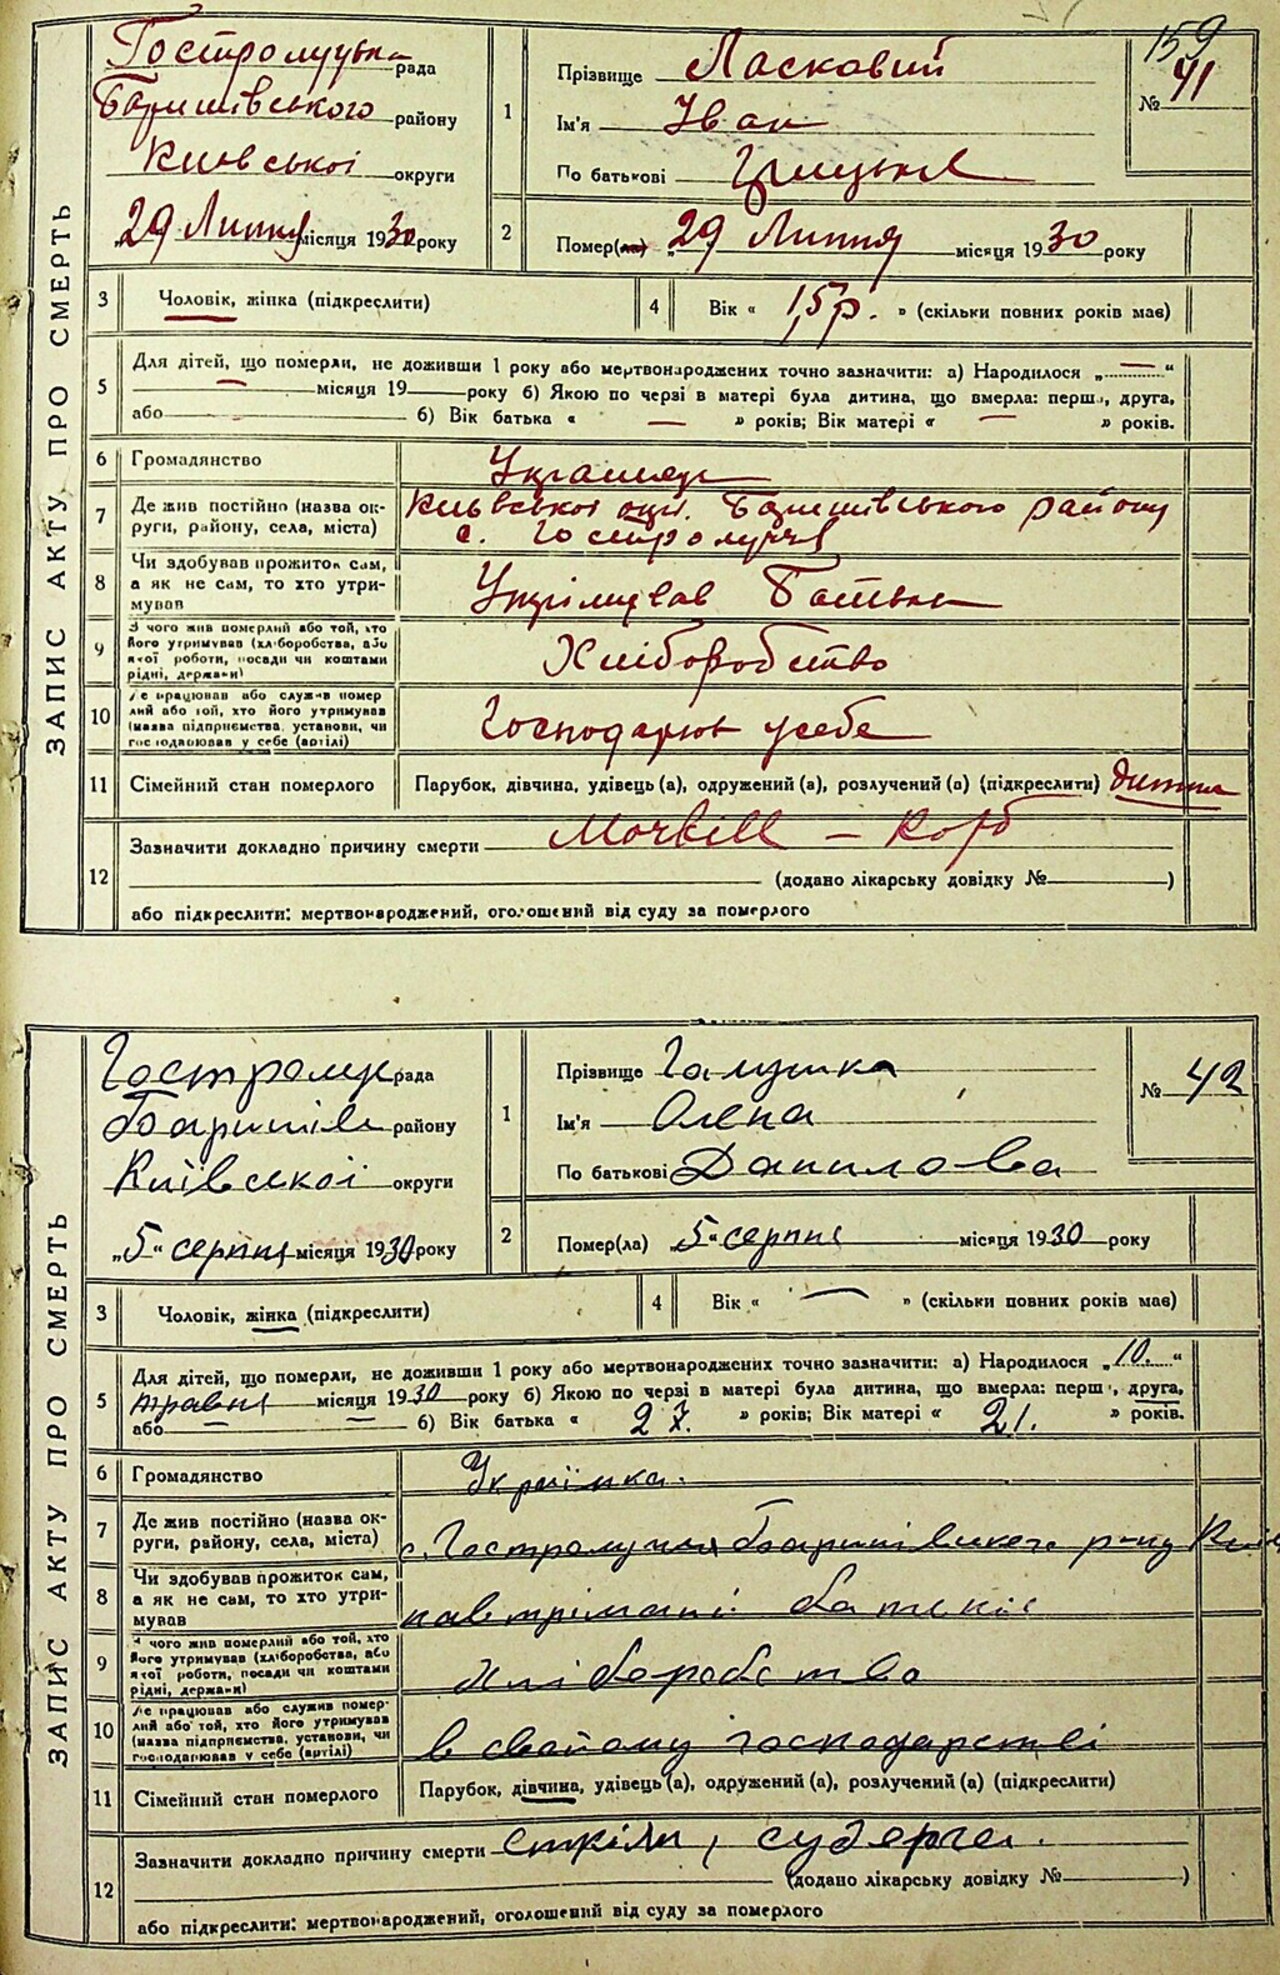 159
Гостролуцька рада
Баришівського району
Київської округи
„29 Липня місяця 1930 року
1
Прізвище Ласковий
Ім'я Іван
По батькові Грицьків
№ 41
2
Помер(ла) „29 Липня місяця 1930 року
ЗАПИС АКТУ ПРО СМЕРТЬ
3 Чоловік, жінка (підкреслити)
4 Вік « 1,5р. » (скільки повних років має)
5 Для дітей, що померли, не доживши 1 року або мертвонароджених точно зазначити: а) Народилося „ — “
— місяця 19 року б) Якою по черзі в матері була дитина, що вмерла: перша, друга,
або — б) Вік батька « — » років; Вік матері « — » років.
6 Громадянство Українець
7 Де жив постійно (назва ок-
руги, району, села, міста)
Київської окр. Баришівського району
с. Гостролуччя
8 Чи здобував прожиток сам,
а як не сам, то хто утри-
мував
Утрімував Батько
9 З чого жив померлий або той, хто
його утримував (хліборобства, або
якої роботи, посади чи коштами
рідні, держави)
Хліборобство
10 Де працював або служив помер
лий або той, хто його утримував
(назва підприємства, установи, чи
господарював у себе (артілі)
Господарюв усебе
11 Сімейний стан померлого Парубок, дівчина, удівець (а), одружений (а), розлучений (а) (підкреслити) дитина
12 Зазначити докладно причину смерти Morbill — Корб
(додано лікарську довідку № )
або підкреслити: мертвонароджений, оголошений від суду за померлого
Гостролуц рада
Баришів району
Київської округи
„5“ серпня місяця 1930 року
1
Прізвище Галушка
Ім'я Олена
По батькові Данилова
№ 42
2
Помер(ла) „5“ серпня місяця 1930 року
ЗАПИС АКТУ ПРО СМЕРТЬ
3 Чоловік, жінка (підкреслити)
4 Вік « — » (скільки повних років має)
5 Для дітей, що померли, не доживши 1 року або мертвонароджених точно зазначити: а) Народилося „10.“
травня місяця 1930 року б) Якою по черзі в матері була дитина, що вмерла: перша, друга,
або — б) Вік батька « 27. » років; Вік матері « 21. » років.
6 Громадянство Українка.
7 Де жив постійно (назва ок-
руги, району, села, міста)
с. Гостролуччя Баришівського р-ну Київ
8 Чи здобував прожиток сам,
а як не сам, то хто утри-
мував
навтріманні батьків
9 З чого жив померлий або той, хто
його утримував (хліборобства, або
якої роботи, посади чи коштами
рідні, держави)
Хліборобство
10 Де працював або служив помер-
лий або той, хто його утримував
(назва підприємства, установи, чи
господарював у себе (артілі)
в своїому господарстві
11 Сімейний стан померлого Парубок, дівчина, удівець (а), одружений (а), розлучений (а) (підкреслити)
12 Зазначити докладно причину смерти судерга.
(додано лікарську довідку № )
або підкреслити: мертвонароджений, оголошений від суду за померлого